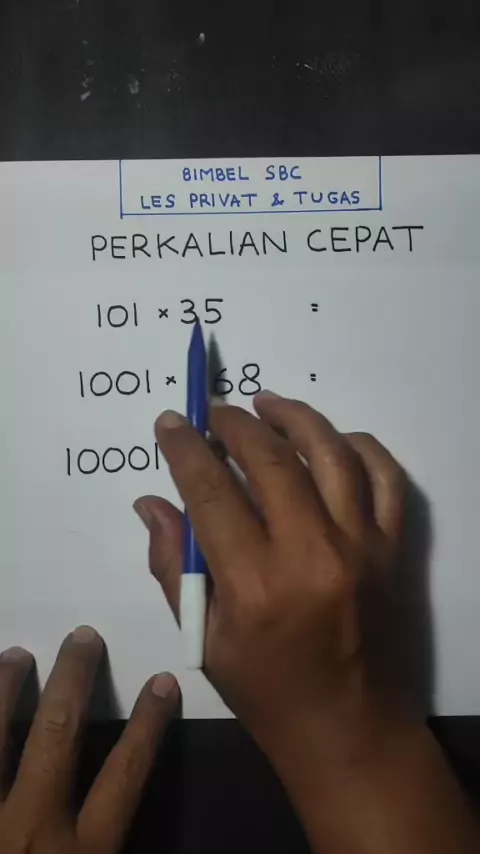 BIMBEL SBC
LES PRIVAT & TUGAS
PERKALIAN CEPAT
101 × 35 =
1001 × 68 =
10001